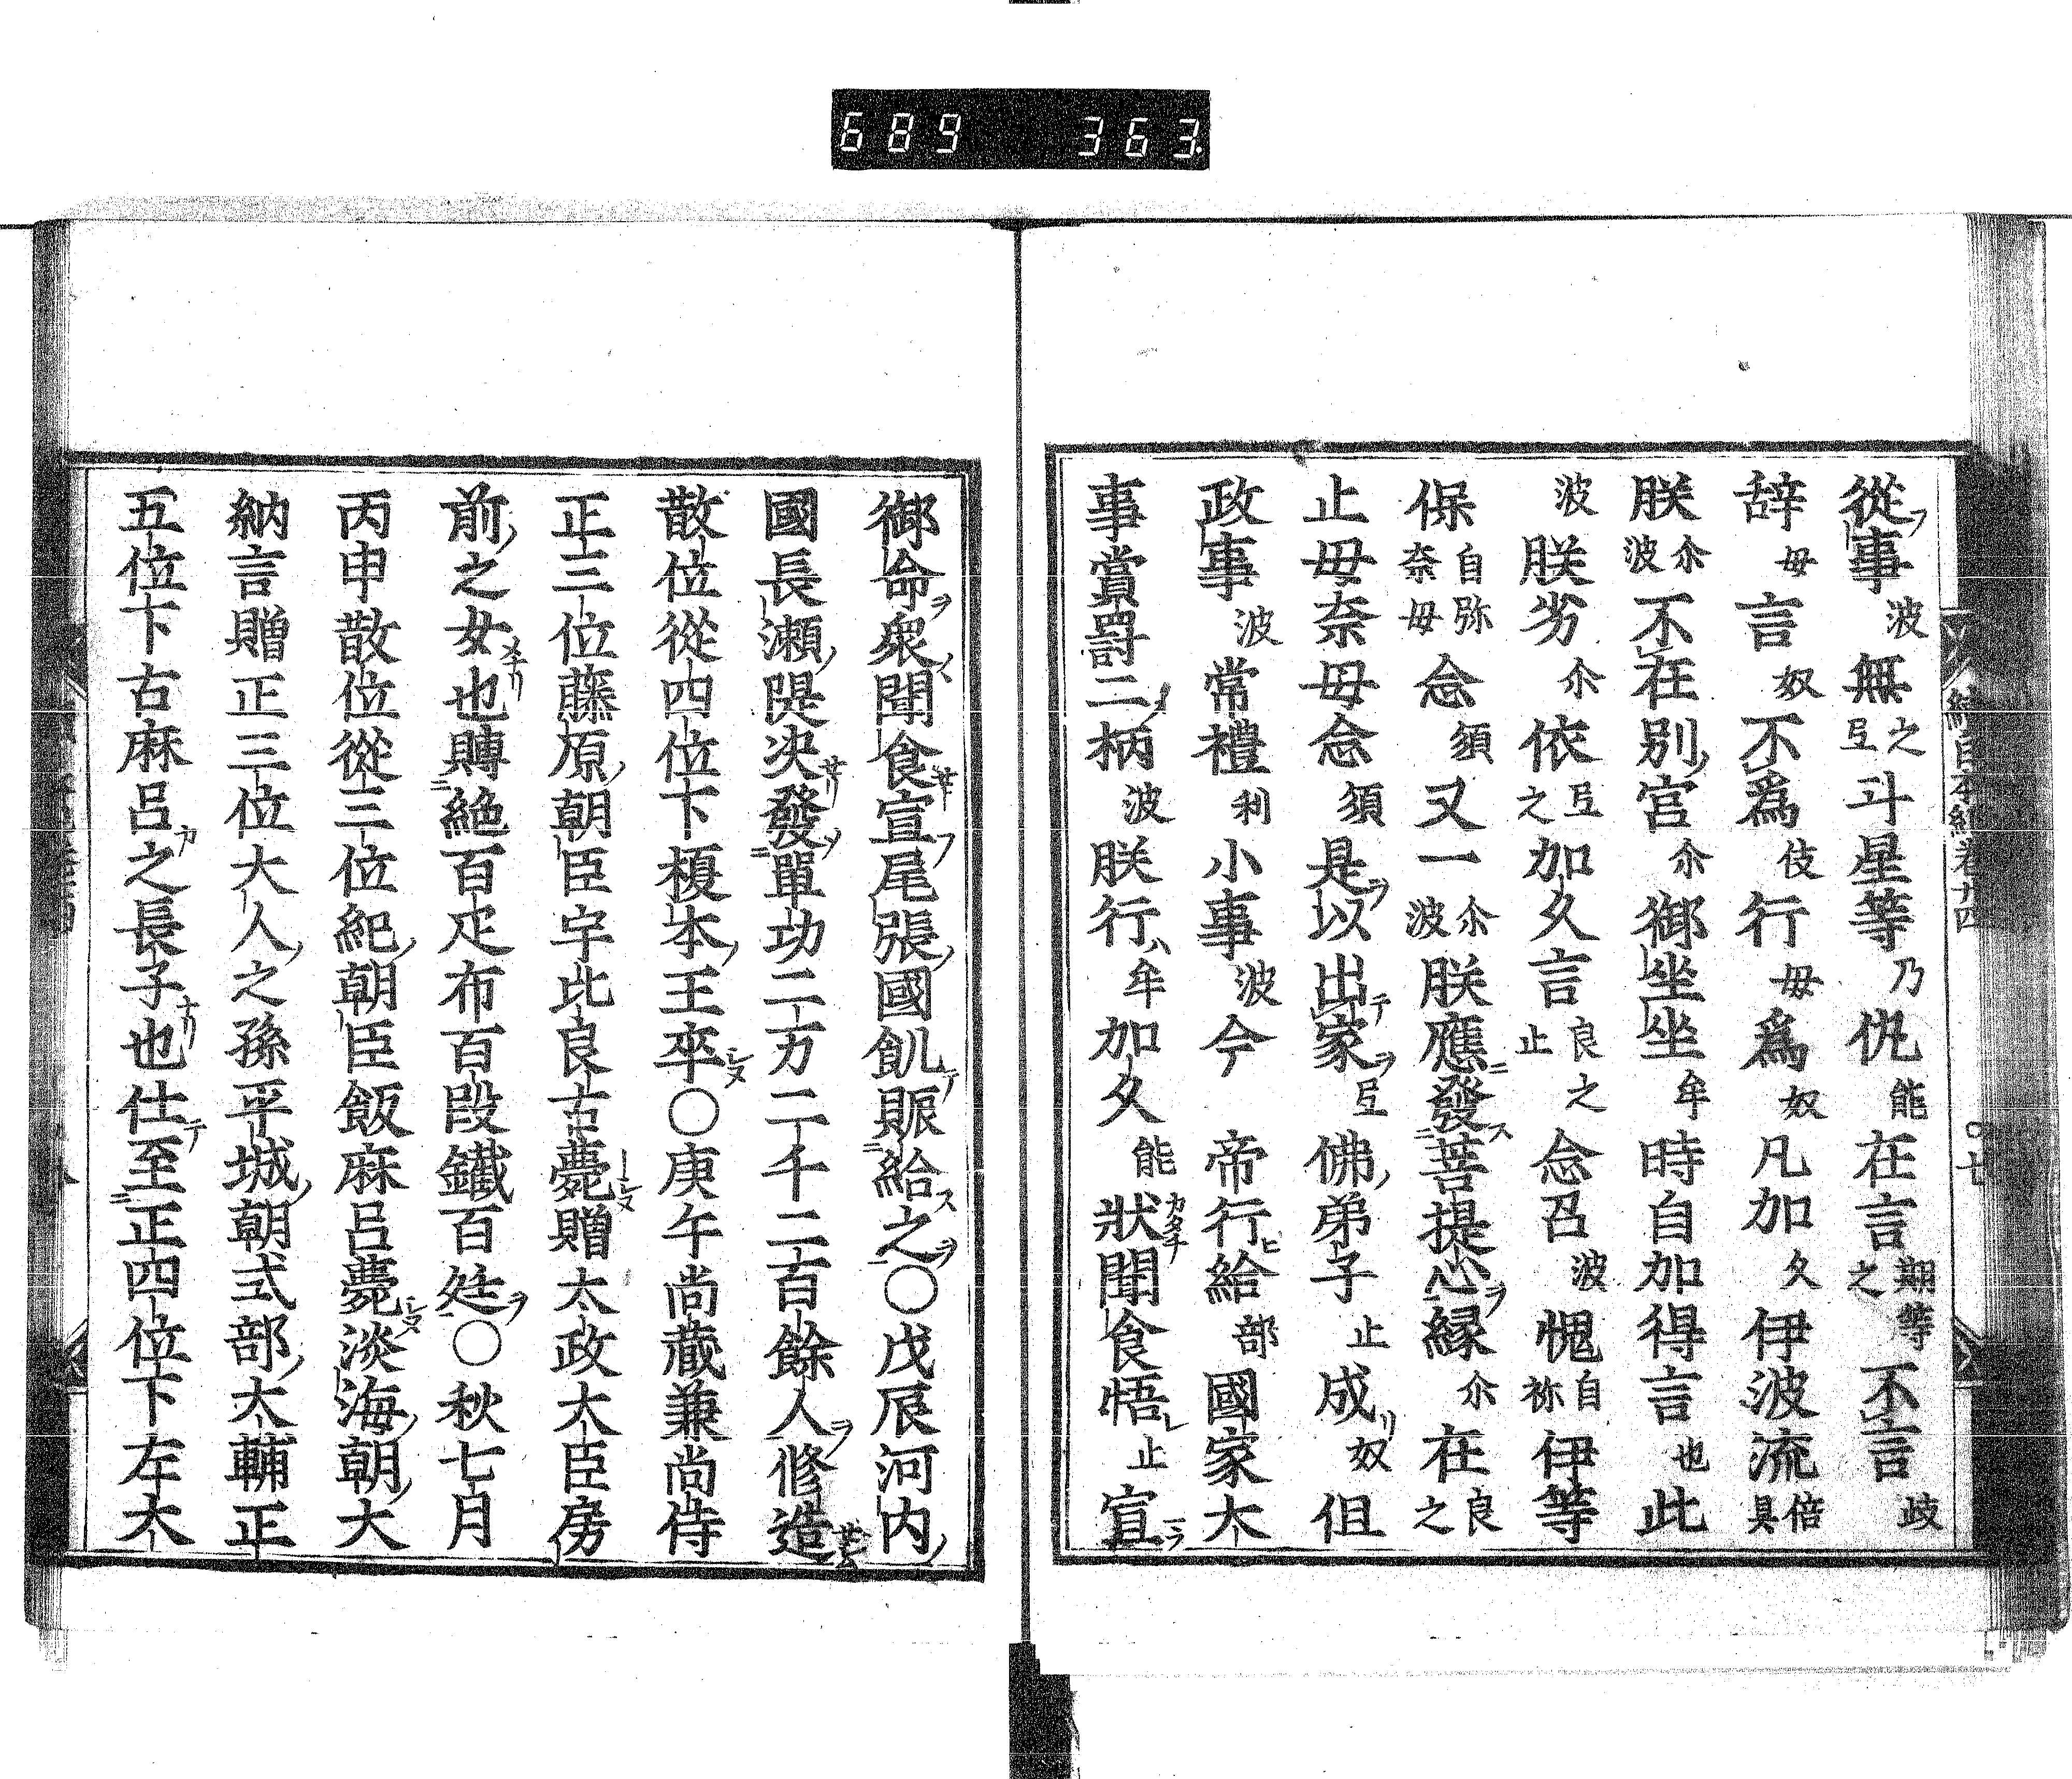 689 363
從事波無之弖斗星等乃仇能在言期等之不言歧
辞毋言奴不爲伎行毋爲奴凡加久伊波流倍具
朕尒波不在别宮尒御坐坐牟時自加得言也此
波朕劣尒依弖之加久言良之止念召波愧自祢伊等
保自弥奈毋念須又一尒波朕應發菩提心縁尒在良之
止毋奈毋念須是以出家弖佛弟子止成奴但
政事波常禮利小事波今帝行給部國家大
事賞罸二柄波朕行牟加久能狀聞食悟止宣
御命衆聞食宣尾張國飢賑給之〇戊辰河内
國長瀬隄决發單功二万二千二百餘人修造
散位從四位下榎本王卒〇庚午尚藏兼尚侍
正三位藤原朝臣宇比良古薨贈太政大臣房
前之女也賻絶百疋布百段鐵百廷〇秋七月
丙申散位從三位紀朝臣飯麻呂薨淡海朝大
納言贈正三位大人之孫平城朝式部大輔正
五位下古麻呂之長子也仕至正四位下左大